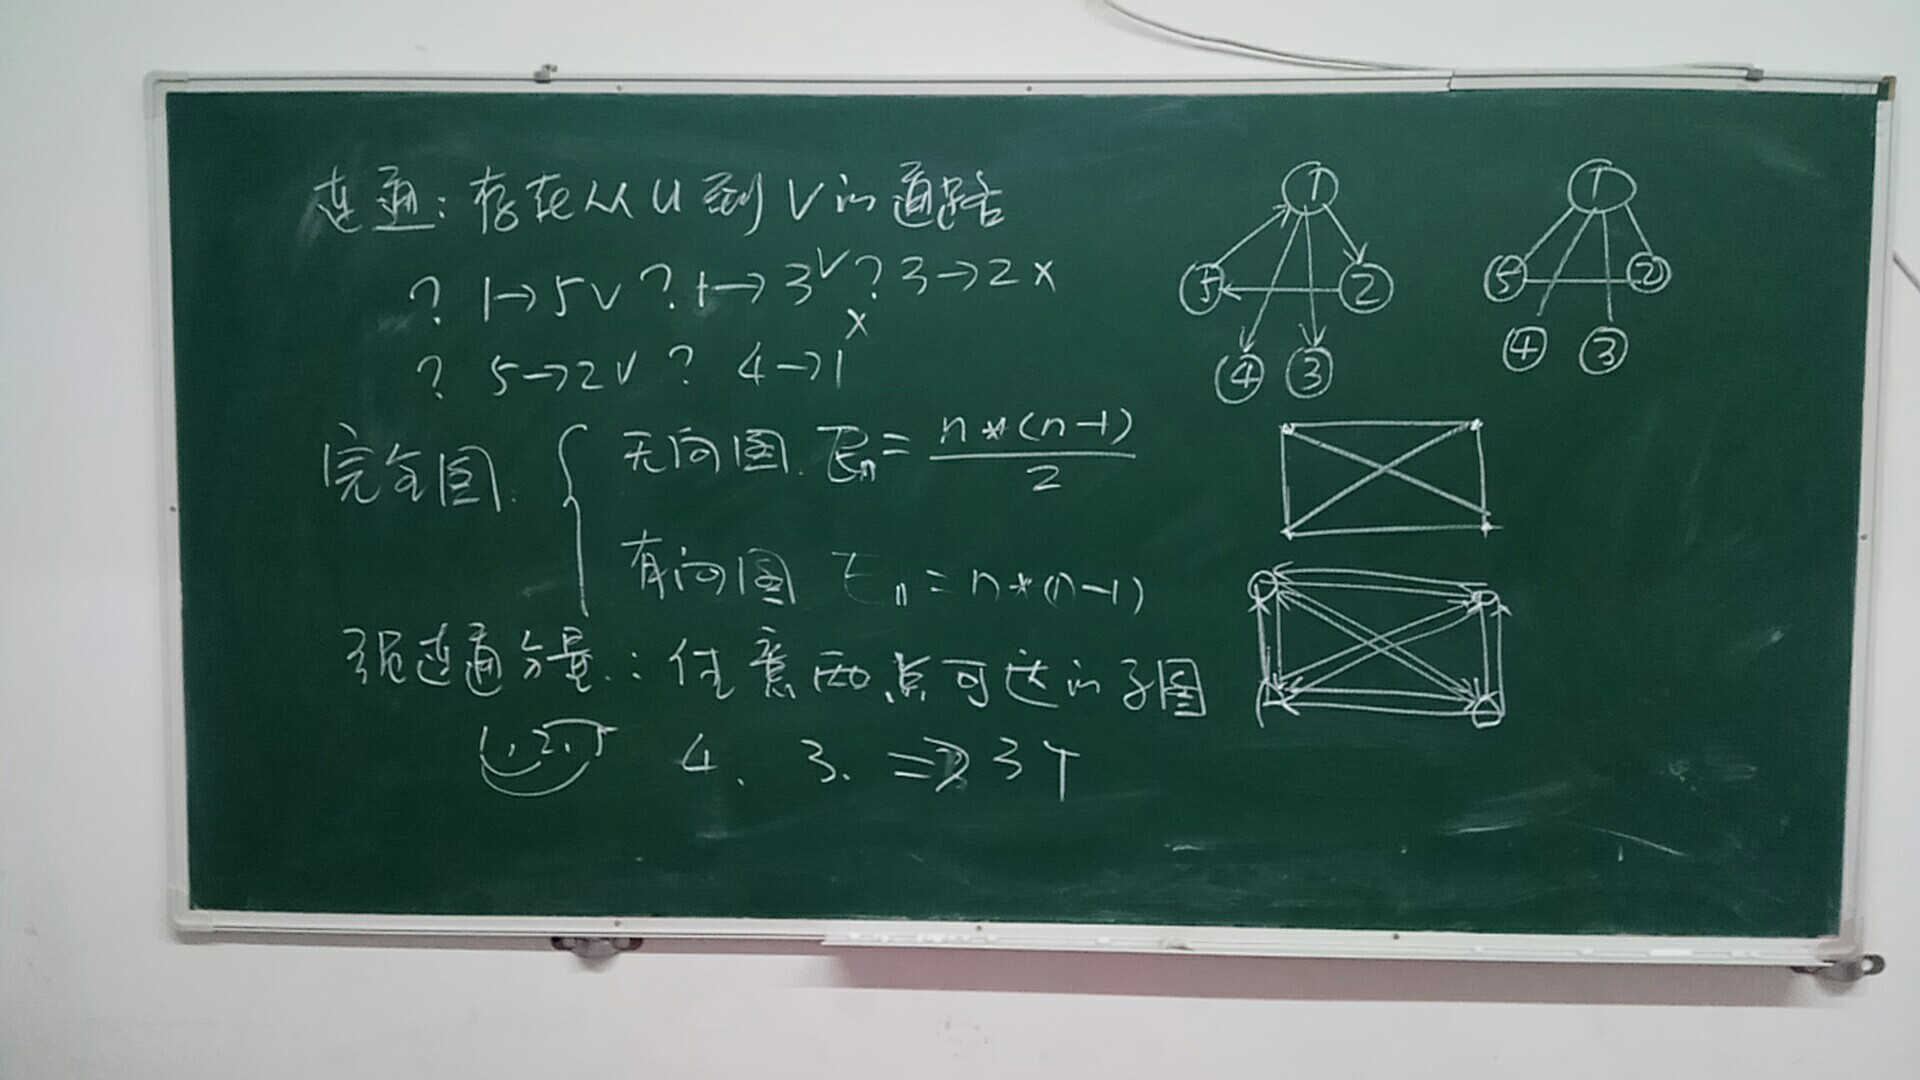 连通:存在从U到V的通路
? 1→5√ ? 1→3√ ? 3→2 ×
? 5→2√ ? 4→1 ×
完全图.
无向图. En = n*(n-1) / 2
有向图 En = n*(n-1)
强连通分量:任意两点可达的子图
1,2,5 4、3、 ⇒ 3个
1
5
2
4
3
1
5
2
4
3